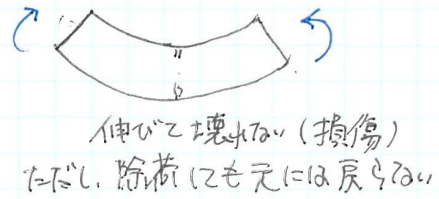 伸びて壊れない(損傷)
ただし、除荷しても元には戻らない